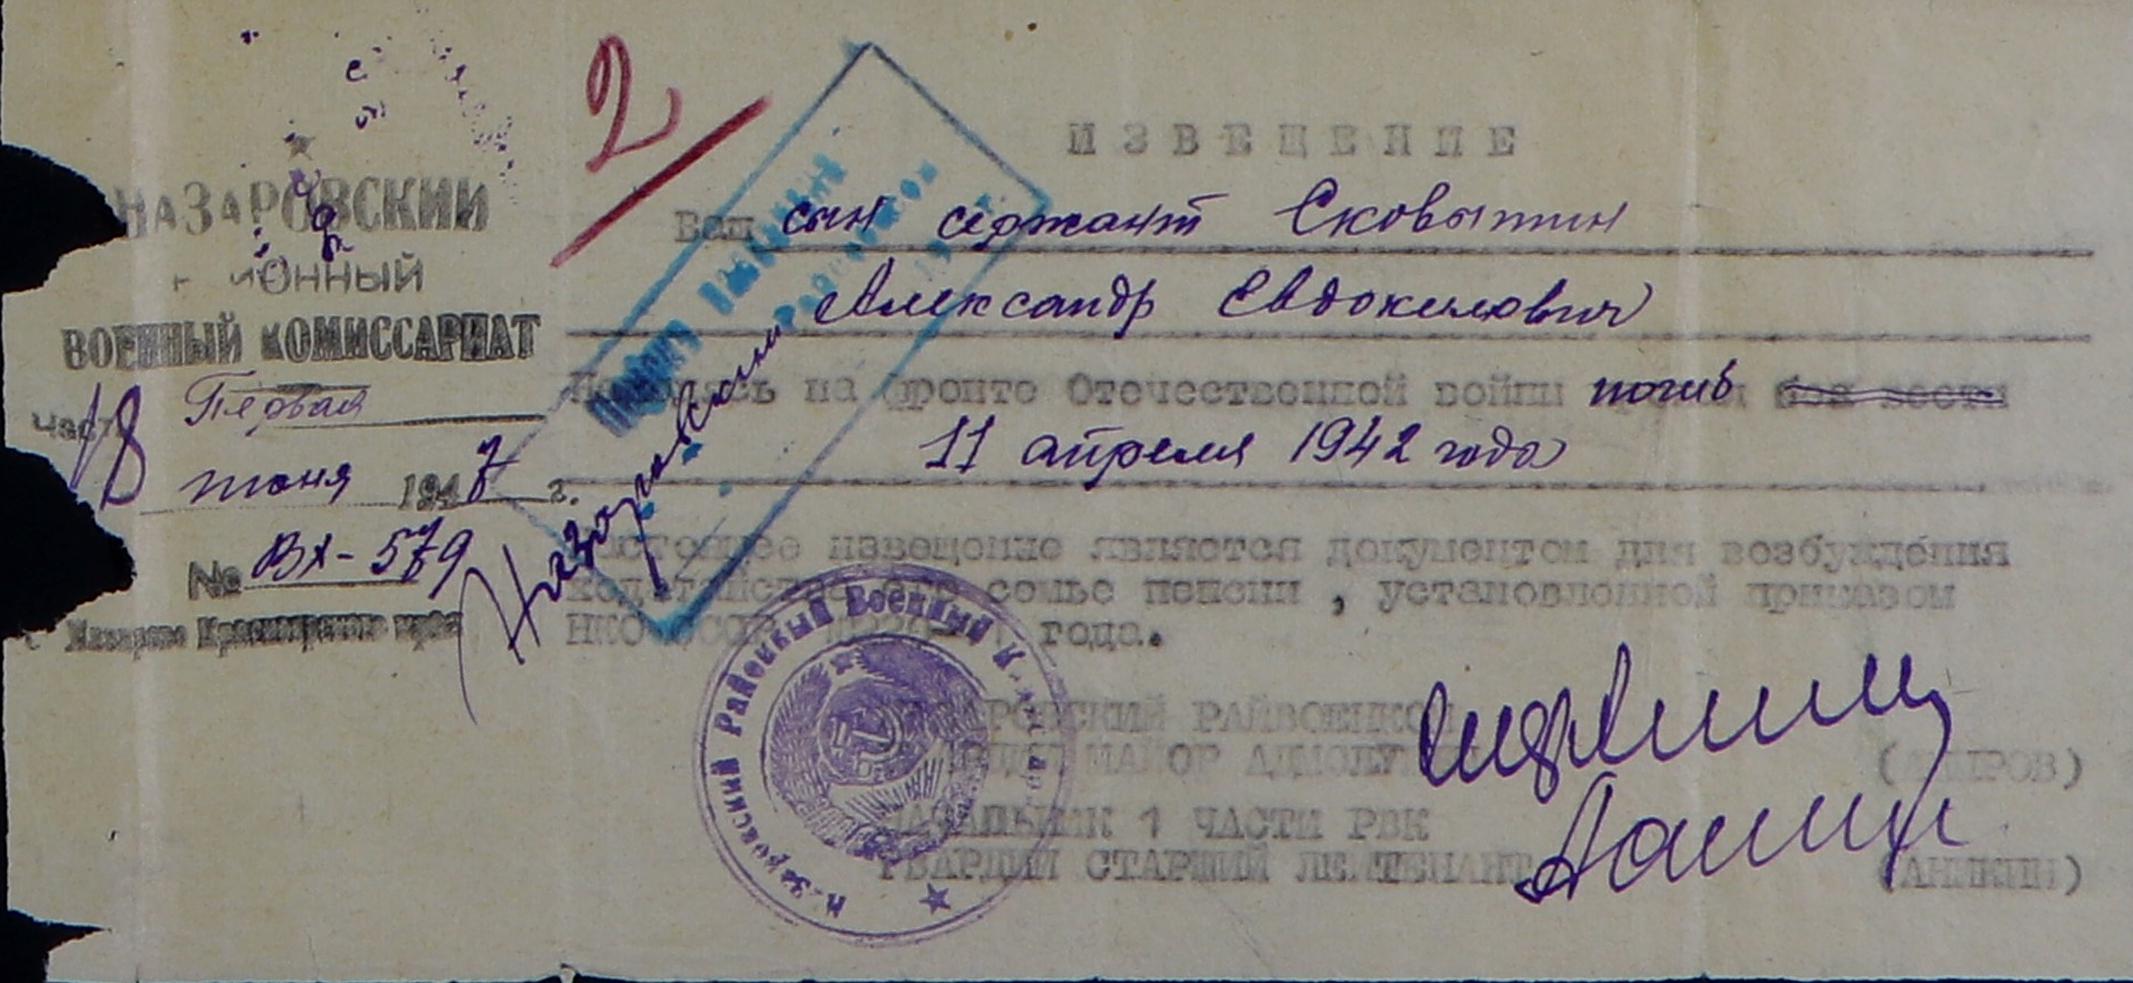 2
НАЗАРОВСКИЙ
ВОЕННЫЙ КОМИССАРИАТ
Часть Первая
18 июня 1947 г.
№ Вх-579
г. Назарово Красноярского края
ИЗВЕЩЕНИЕ
Ваш сын сержант Сковытин
Александр Евдокимович
на фронте Отечественной войны погиб без вести
11 апреля 1942 года
Настоящее извещение является документом для возбуждения
ходатайства семье пенсии , установленной приказом
НКО СССР года.
НАЗАРОВСКИЙ РАЙВОЕНКОМ
МАЙОР АДМ СЛУЖБЫ
НАЧАЛЬНИК 1 ЧАСТИ РВК
ГВАРДИИ СТАРШИЙ ЛЕЙТЕНАНТ (АНИКИН)
Назаровский Районный Военный
Назаровский